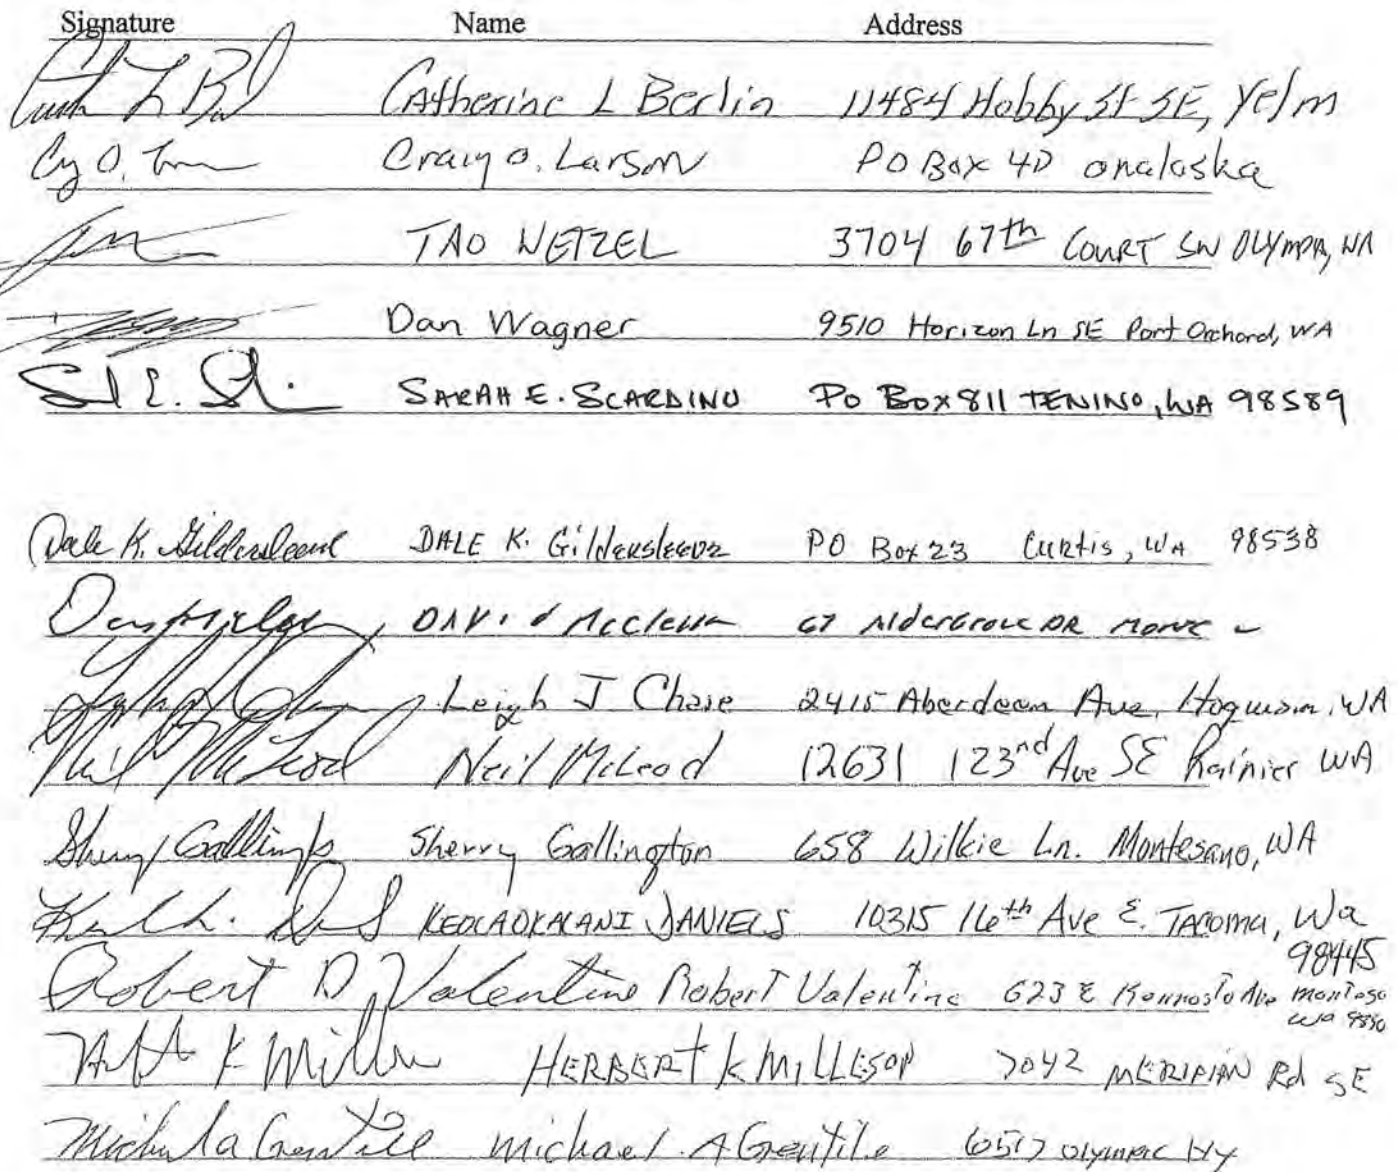 Signature Name Address
Catherine L Berlin 11484 Hobby St SE, Yelm
Craig O. Larson PO Box 40 Onalaska
TAO WETZEL 3704 67th COURT SW OLYMPIA, WA
Dan Wagner 9510 Horizon Ln SE Port Orchard, WA
SARAH E. SCARDINO PO BOX 811 TENINO, WA 98589
Dale K. Gildersleeve DALE K. GILDERSLEEVE PO Box 23 Curtis, WA 98538
DAVID McClellan 67 AlderGrove DR
Leigh J Chase 2415 Aberdeen Ave, Hoquiam, WA
Neil McLeod Neil McLeod 12631 123nd Ave SE Rainier WA
Sherry Gallington Sherry Gallington 658 Wilkie Ln. Montesano, WA
DANIELS 10315 16th Ave E. TACOMA, Wa
98445
Robert D. Valentine Robert Valentine 623 E Ave
Wa
HERBERT K MILLESON 7042 MERIDIAN Rd SE
Michael A Gentile Michael A Gentile 6517 OLYMPIC HY